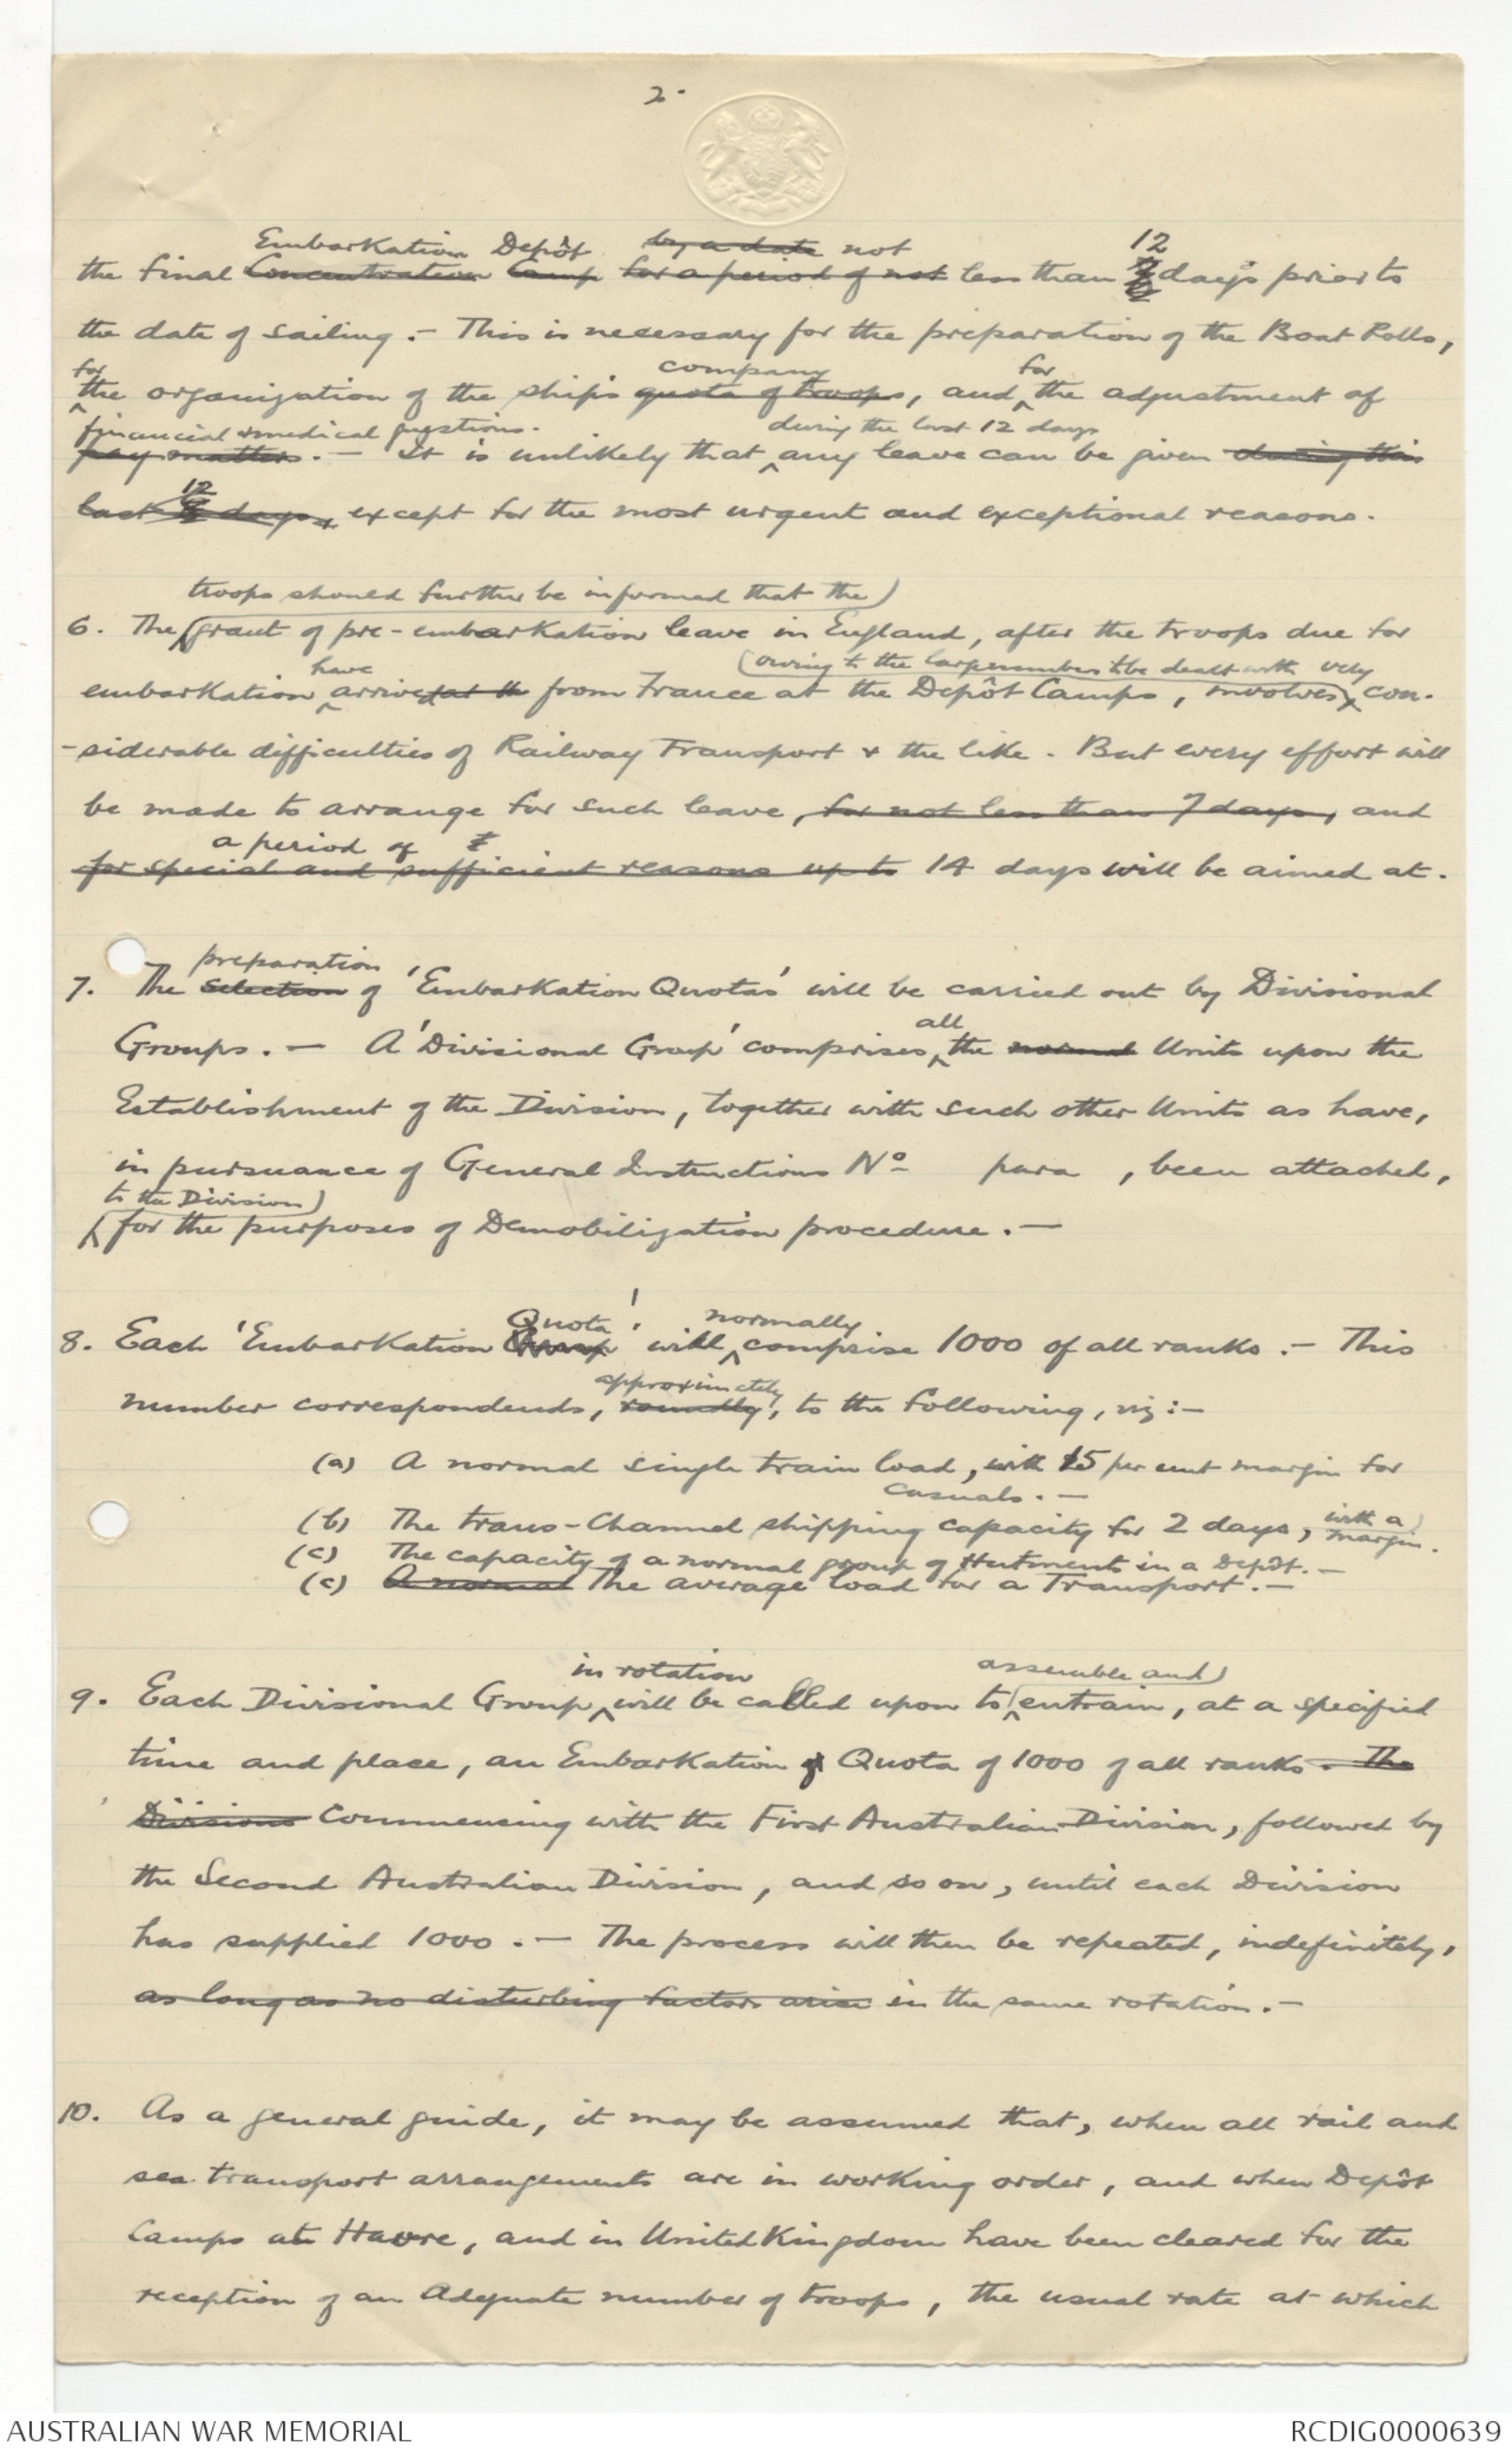 2.
Embarkation Depôt by a date not 12
the final Concentration Camp for a period of not less than days prior to
the date of sailing. – This is necessary for the preparation of the Boat Rolls,
for company for
the organization of the ship's quota of troops, and the adjustment of
financial & medical questions. during the last 12 days
pay matters. – It is unlikely that any leave can be given during this
12
last days, except for the most urgent and exceptional reasons.
troops should further be informed that the
6. The grant of pre-embarkation leave in England, after the troops due for
have owing to the large numbers to be dealt with very
embarkation arrive at th from France at the Depôt Camps, involves con-
-siderable difficulties of Railway Transport & the like. But every effort will
be made to arrange for such leave, for not less than 7 days, and
a period of
for special and sufficient reasons up to 14 days will be aimed at.
preparation
7. The selection of 'Embarkation Quotas' will be carried out by Divisional
all
Groups. – A 'Divisional Group' comprises the normal Units upon the
Establishment of the Division, together with such other Units as have,
in pursuance of General Instructions No para , been attached,
to the Division
for the purposes of Demobilization procedure. –
Quota' normally
8. Each 'Embarkation Group will comprise 1000 of all ranks. – This
approximately
number correspondends, roundly, to the following, viz :–
(a) A normal single train load, with 15 per cent margin for
casuals. –
(b) The trans-Channel shipping capacity for 2 days, with a
margin.
(c) The capacity of a normal group of Hutments in a Depôt. –
(c) A normal The average load for a Transport. –
in rotation assemble and
9. Each Divisional Group will be called upon to entrain, at a specified
time and place, an Embarkation Quota of 1000 of all ranks. The
Divisions Commencing with the First Australian Division, followed by
the Second Australian Division, and so on, until each Division
has supplied 1000. – The process will then be repeated, indefinitely,
as long as no disturbing factors arise in the same rotation. –
10. As a general guide, it may be assumed that, when all rail and
sea transport arrangements are in working order, and when Depôt
Camps at Havre, and in United Kingdom have been cleared for the
reception of an Adequate number of troops, the usual rate at which
AUSTRALIAN WAR MEMORIAL
RCDIG0000639